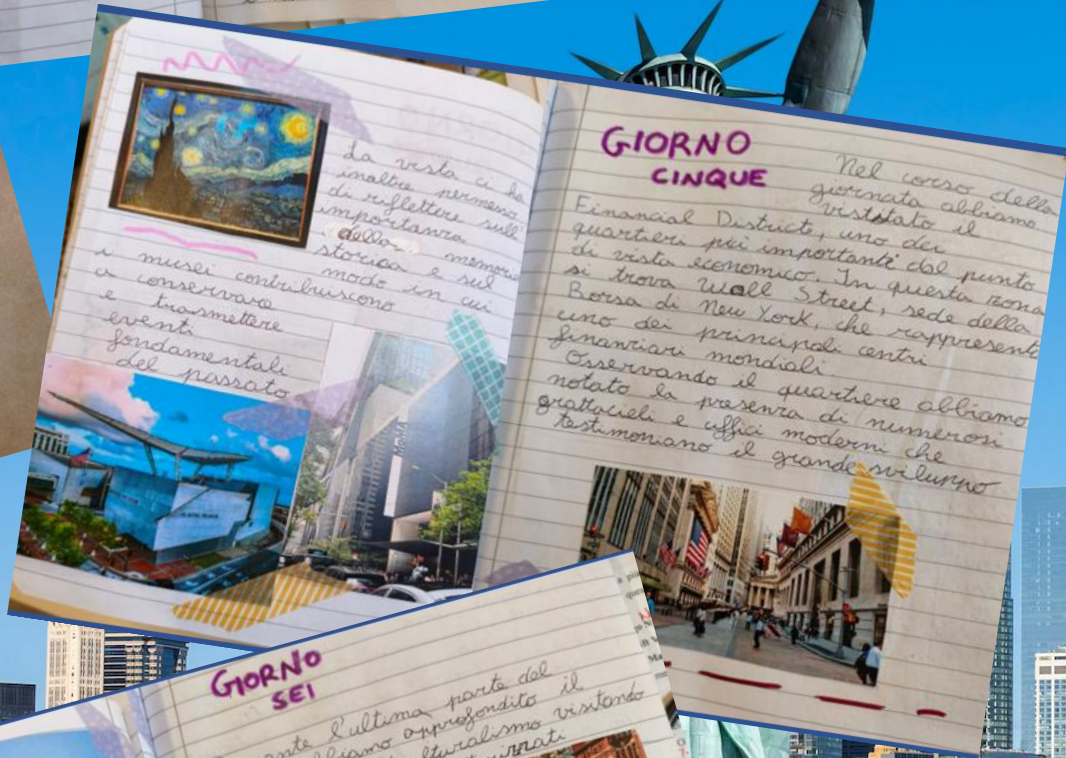 La vista ci ha
inoltre permesso
di riflettere sull'
importanza
della memoria
storica e sul
modo in cui
i musei contribuiscono
a conservare
e trasmettere
eventi
fondamentali
del passato
MOMA
GIORNO
CINQUE
Nel corso della
giornata abbiamo
il
Financial District, uno dei
quartieri più importanti dal punto
di vista economico. In questa zona
si trova Wall Street, sede della
Borsa di New York, che rappresenta
uno dei principali centri
finanziari mondiali
Osservando il quartiere abbiamo
notato la presenza di numerosi
grattacieli e uffici moderni che
testimoniano il grande sviluppo
GIORNO
SEI
l'ultima parte del
approfondito il
visitando